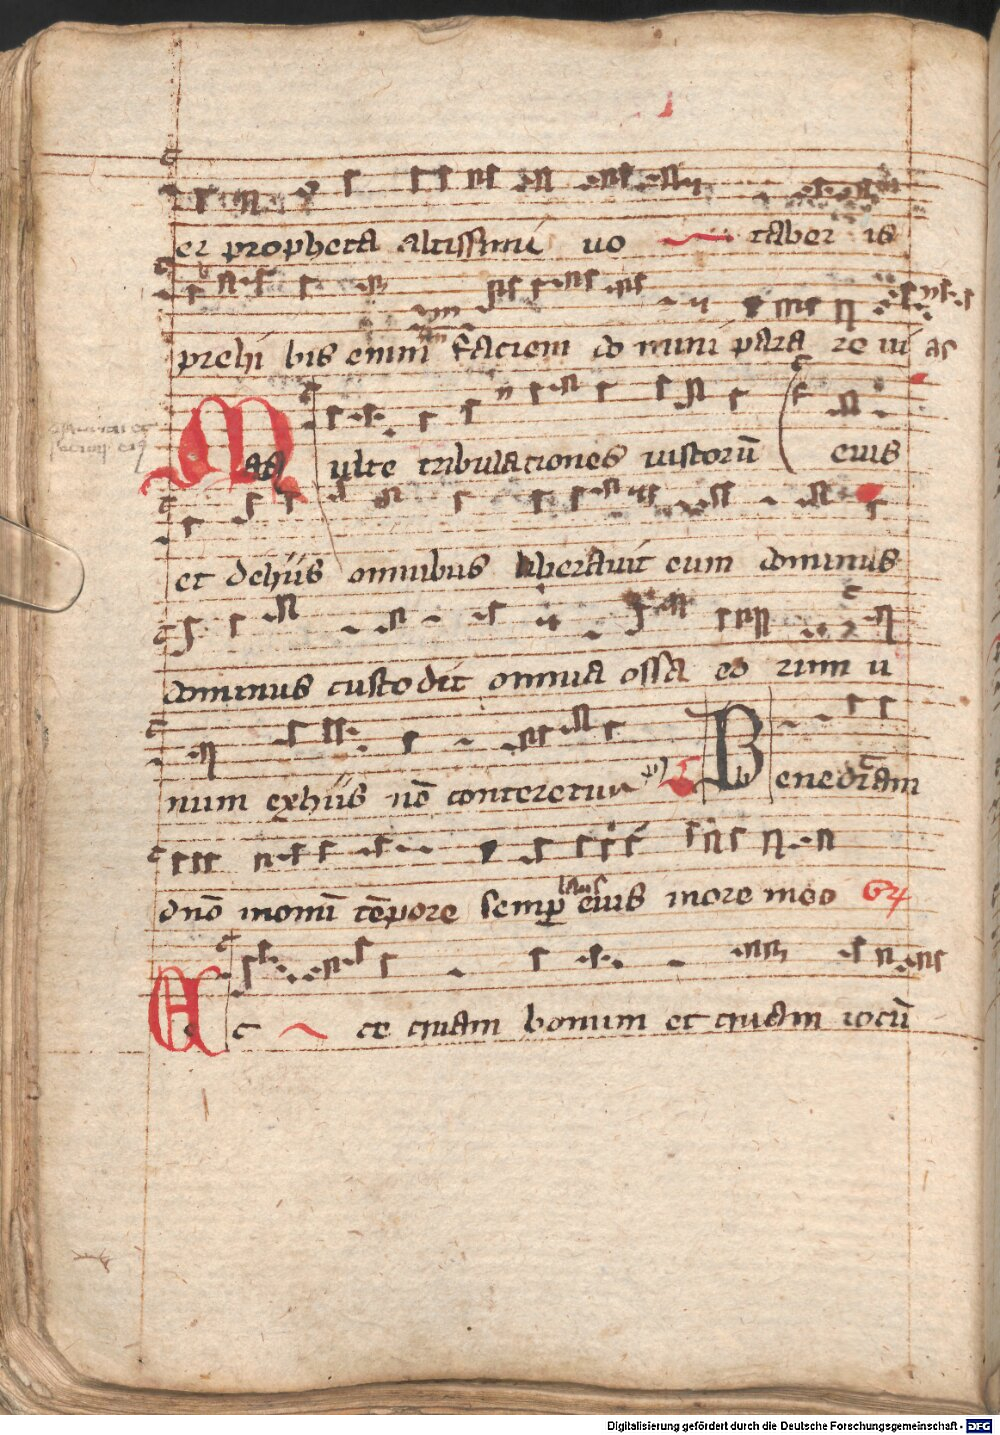 er propheta altissimi uo taber is
prehi bis enim faciem do mini para re ui as
Multe tribulationes iustorū eius
et dehiis omnibus liberavit eum dominus
dominus custodit omnia ossa eo rum u
num exhiis nō conteretur Benedicam
dnō inomī tēpore semp laus eius inore meo
Ac ce quam bonum et quam iocū
Digitalisierung gefördert durch die Deutsche Forschungsgemeinschaft - DFG